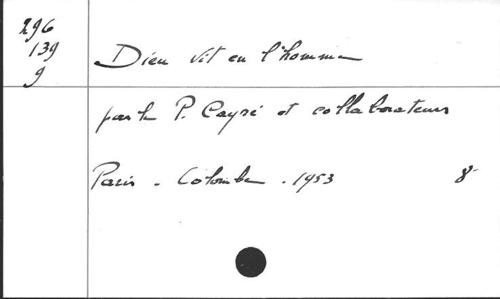 296
139
9
Dieu vit en l'homme
par le P. Cayré et collaborateurs
Paris - Colombe - 1953 8°